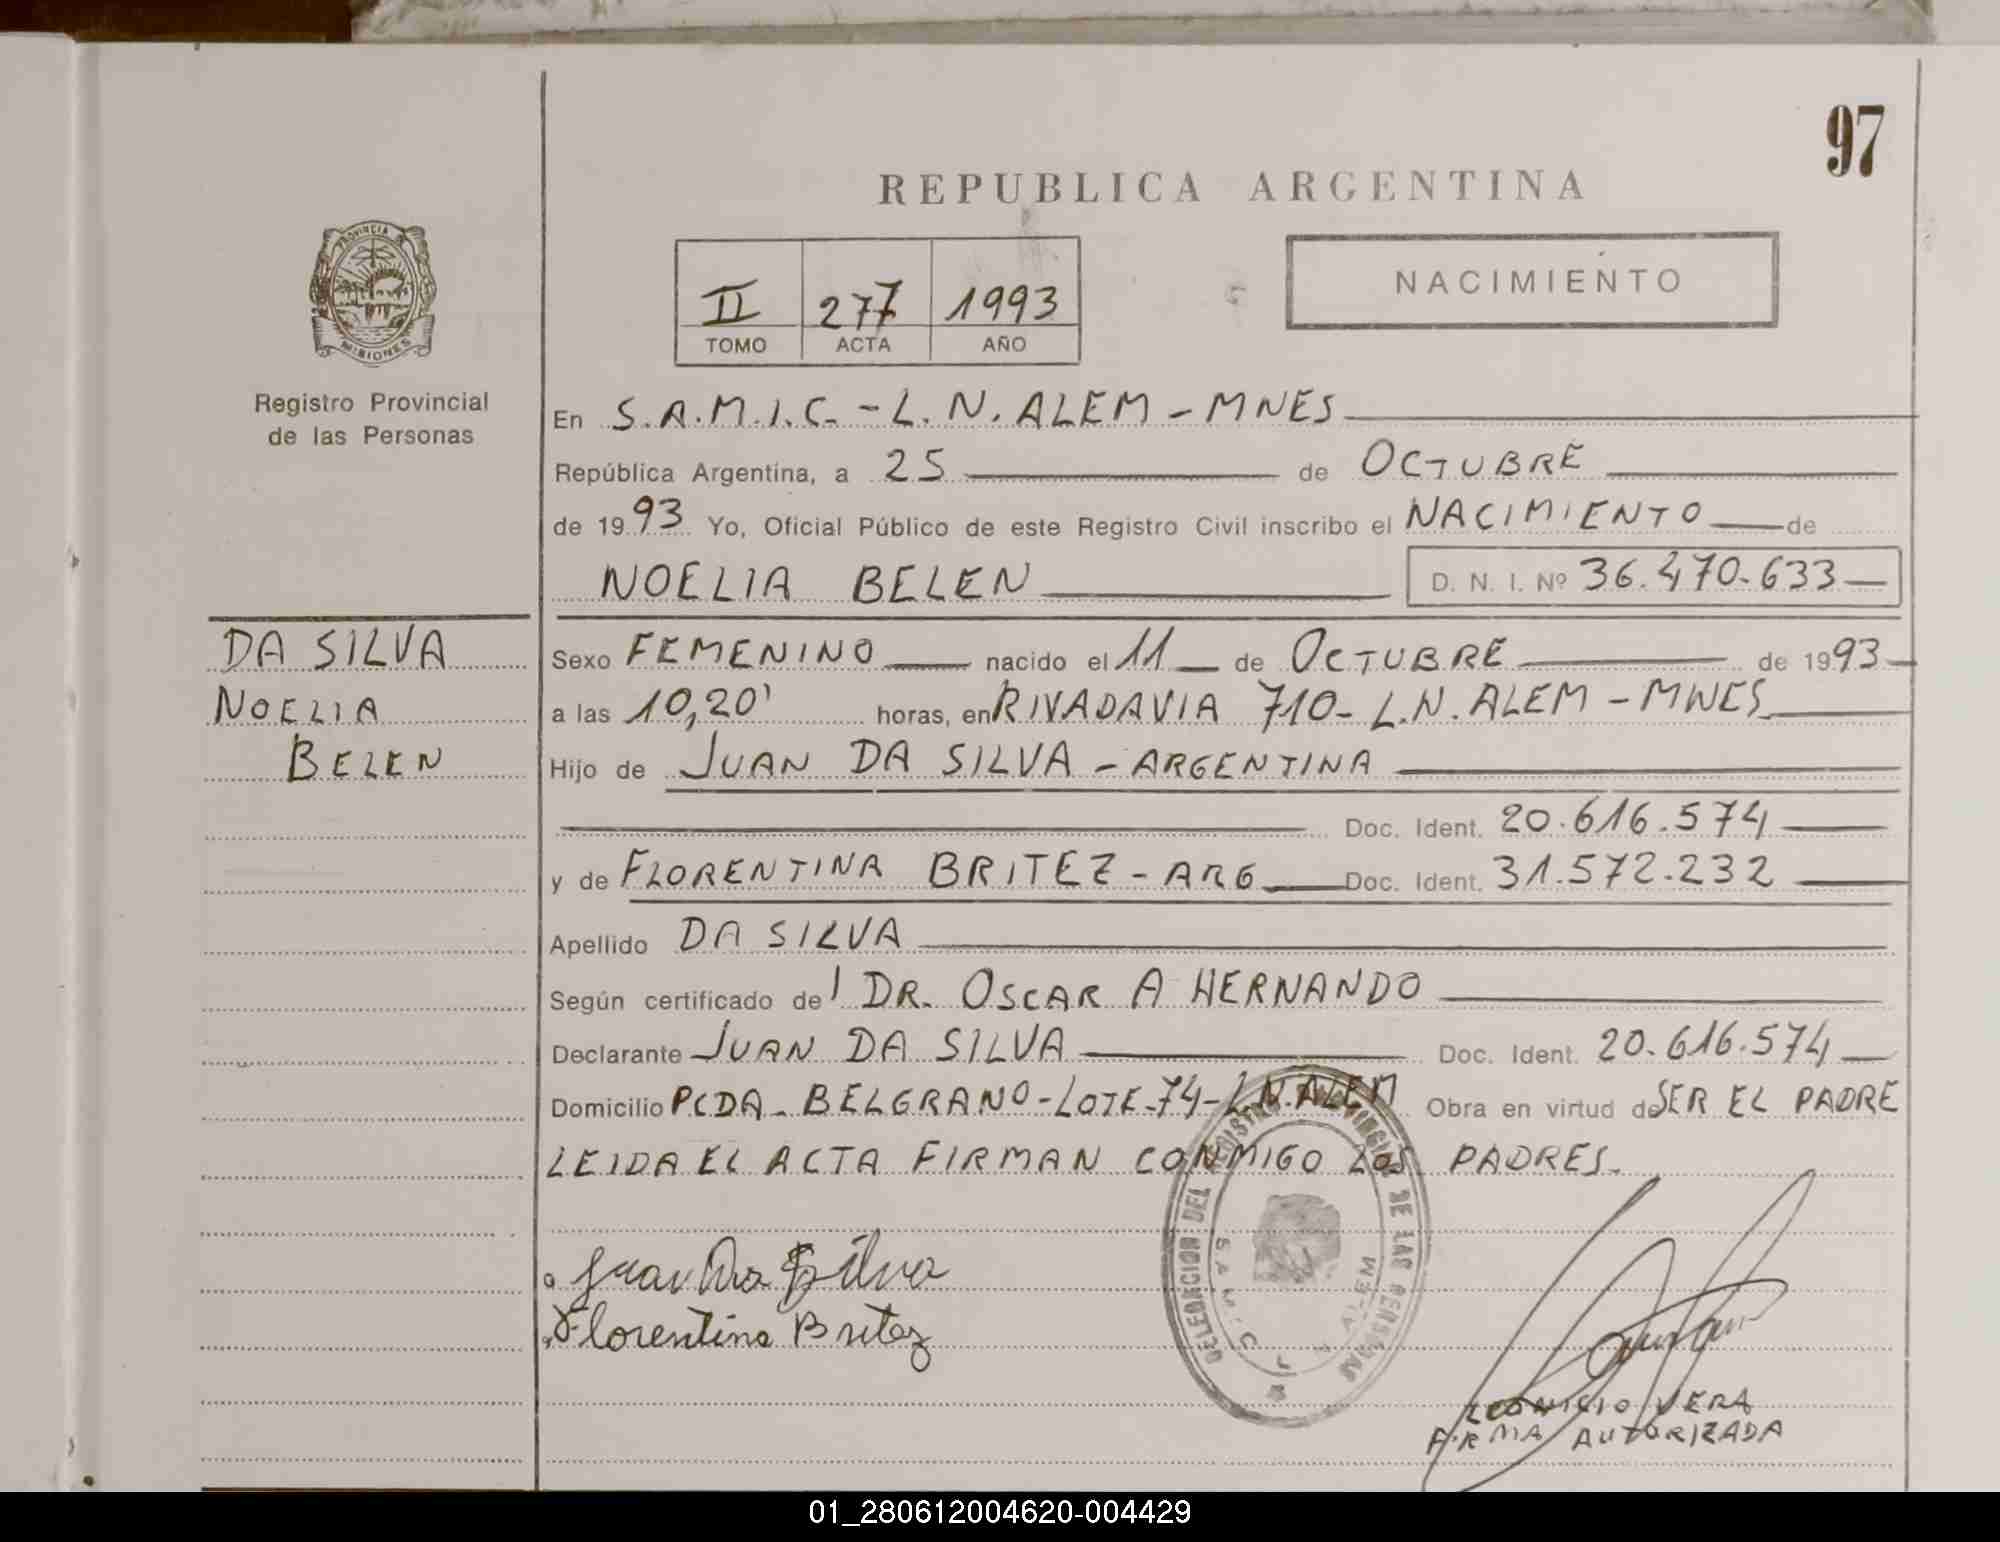 97
REPUBLICA ARGENTINA
PROVINCIA
MISIONES
Registro Provincial
de las Personas
II 277 1993
TOMO ACTA AÑO
NACIMIENTO
En S.A.M.I.C. - L.N. ALEM - MNES
República Argentina, a 25 de OCTUBRE
de 1993 Yo, Oficial Público de este Registro Civil inscribo el NACIMIENTO de
NOELIA BELEN D. N. I. Nº 36.470.633
DA SILVA
NOELIA
BELEN
Sexo FEMENINO nacido el 11 de OCTUBRE de 1993
a las 10,20' horas, en RIVADAVIA 710 - L.N. ALEM - MNES
Hijo de JUAN DA SILVA - ARGENTINA
Doc. Ident. 20.616.574
y de FLORENTINA BRITEZ - ARG Doc. Ident. 31.572.232
Apellido DA SILVA
Según certificado del DR. OSCAR A HERNANDO
Declarante JUAN DA SILVA Doc. Ident. 20.616.574
Domicilio PCDA - BELGRANO - LOTE - 74 - L.N. ALEM Obra en virtud de SER EL PADRE
LEIDA EL ACTA FIRMAN CONMIGO LOS PADRES.
Juan Da Silva
Florentina Britez
DELEGACION DEL REGISTRO PROVINCIAL DE LAS PERSONAS
S.A.M.I.C. L. N. ALEM
LEONICIO VERA
FIRMA AUTORIZADA
01_280612004620-004429